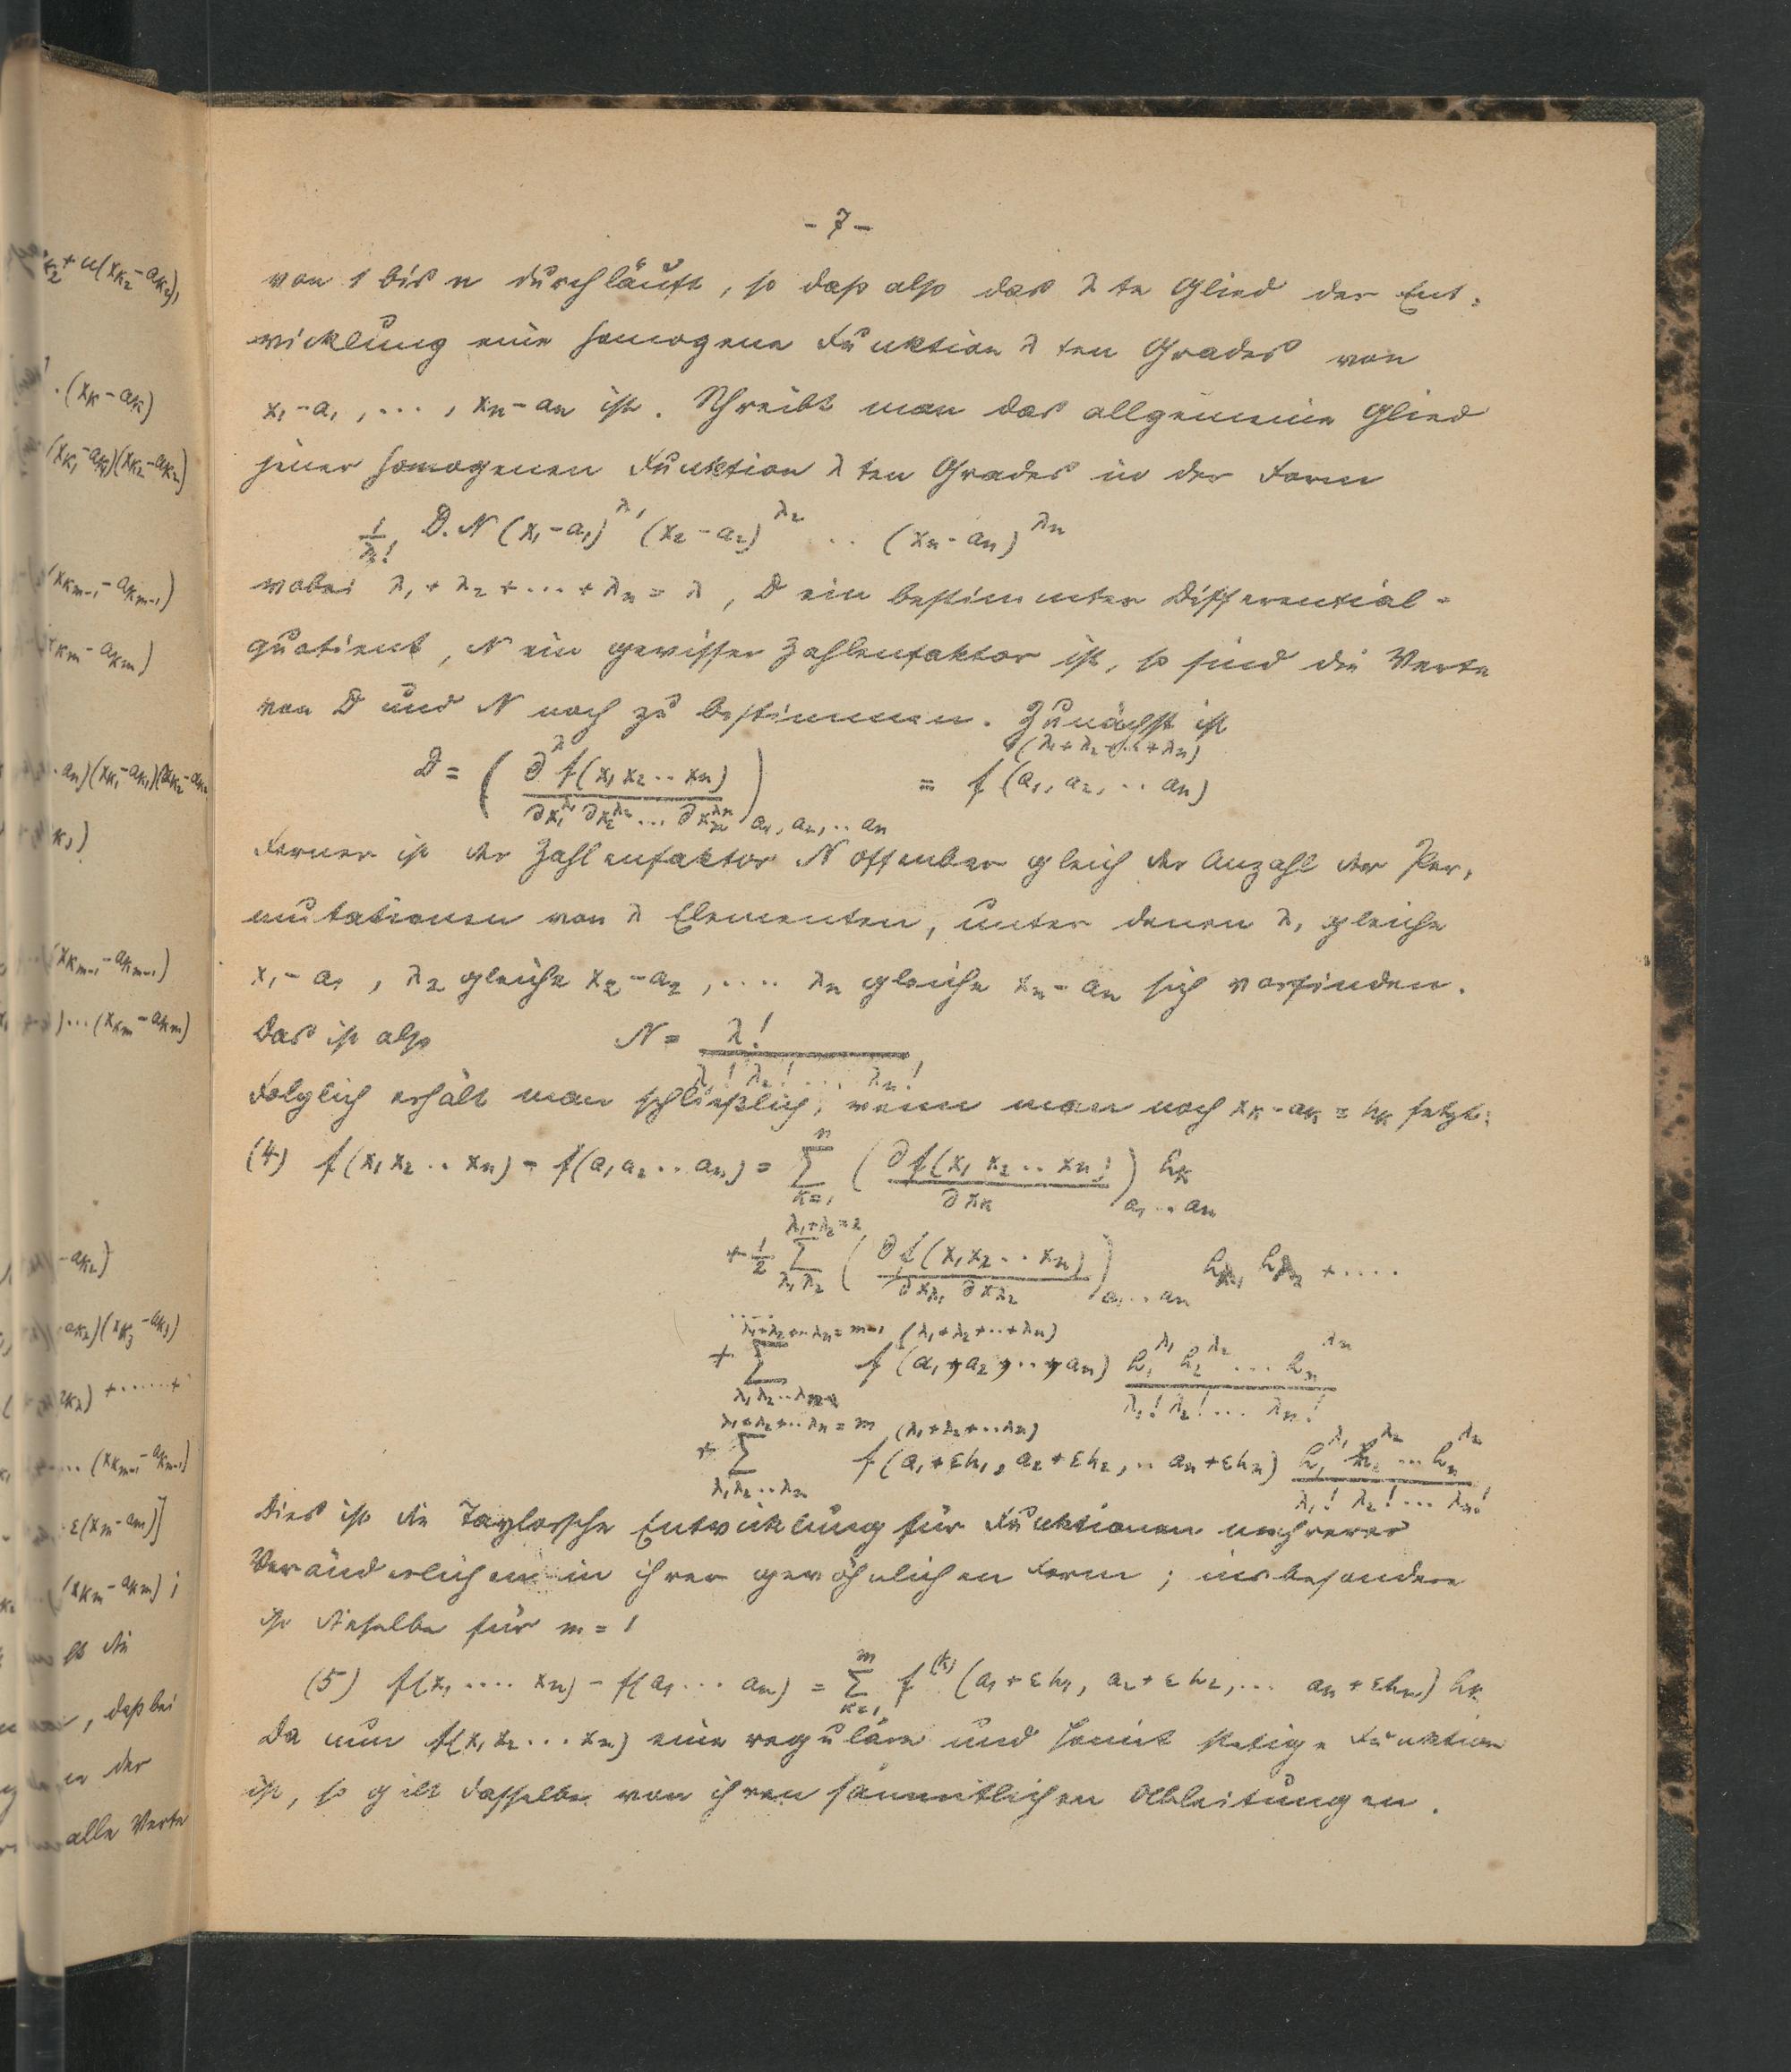 - 7 -
von 1 bis n durchläuft, so daß also das λte Glied der Ent-
wicklung eine homogene Funktion λten Grades von
x₁-a₁, ..., xₙ-aₙ ist. Schreibt man das allgemeine Glied
jener homogenen Funktion λten Grades in der Form
1/λ! D.N (x₁-a₁)^λ₁ (x₂-a₂)^λ₂ .. (xₙ-aₙ)^λₙ
wobei λ₁+λ₂+...+λₙ = λ, D ein bestimmter Differential-
quotient, N ein gewisser Zahlenfaktor ist, so sind die Werte
von D und N noch zu bestimmen. Zunächst ist
D = (∂^λ f(x₁x₂..xₙ) / ∂x₁^λ₁ ∂x₂^λ₂ ... ∂xₙ^λₙ)_{a₁,a₂,..aₙ} = f^(λ₁+λ₂+..+λₙ) (a₁,a₂,..aₙ)
Ferner ist der Zahlenfaktor N offenbar gleich der Anzahl der Per-
mutationen von λ Elementen, unter denen λ₁ gleiche
x₁-a₁, λ₂ gleiche x₂-a₂, .... λₙ gleiche xₙ-aₙ sich vorfinden.
Das ist also N = λ! / λ₁! λ₂! ... λₙ!
Folglich erhält man schließlich, wenn man noch xₖ-aₖ = hₖ setzt:
(4) f(x₁x₂..xₙ) - f(a₁a₂..aₙ) = Σ_{k=1}^{n} (∂f(x₁x₂..xₙ) / ∂xₖ)_{a₁..aₙ} hₖ
+ 1/2 Σ_{λ₁λ₂}^{λ₁+λ₂=2} (∂f(x₁x₂..xₙ) / ∂x_λ₁ ∂x_λ₂)_{a₁..aₙ} h_λ₁ h_λ₂ + ....
.....
+ Σ_{λ₁λ₂..λₙ}^{λ₁+λ₂+..λₙ=m-1} f^(λ₁+λ₂+..+λₙ) (a₁,a₂,..,aₙ) h₁^λ₁ h₂^λ₂ ... hₙ^λₙ / λ₁! λ₂! ... λₙ!
+ Σ_{λ₁λ₂..λₙ}^{λ₁+λ₂+..λₙ=m} f^(λ₁+λ₂+..λₙ) (a₁+εh₁, a₂+εh₂, .. aₙ+εhₙ) h₁^λ₁ h₂^λ₂ ... hₙ^λₙ / λ₁! λ₂! ... λₙ!
Dies ist die Taylorsche Entwicklung für Funktionen mehrerer
Veränderlichen in ihrer gewöhnlichen Form; insbesondere
ist dieselbe für m = 1
(5) f(x₁ .... xₙ) - f(a₁ ... aₙ) = Σ_{k=1}^{m} f^(k) (a₁+εh₁, a₂+εh₂, ... aₙ+εhₙ) hₖ
Da nun f(x₁x₂...xₙ) eine reguläre und somit stetige Funktion
ist, so gilt dasselbe von ihren sämmtlichen Ableitungen.